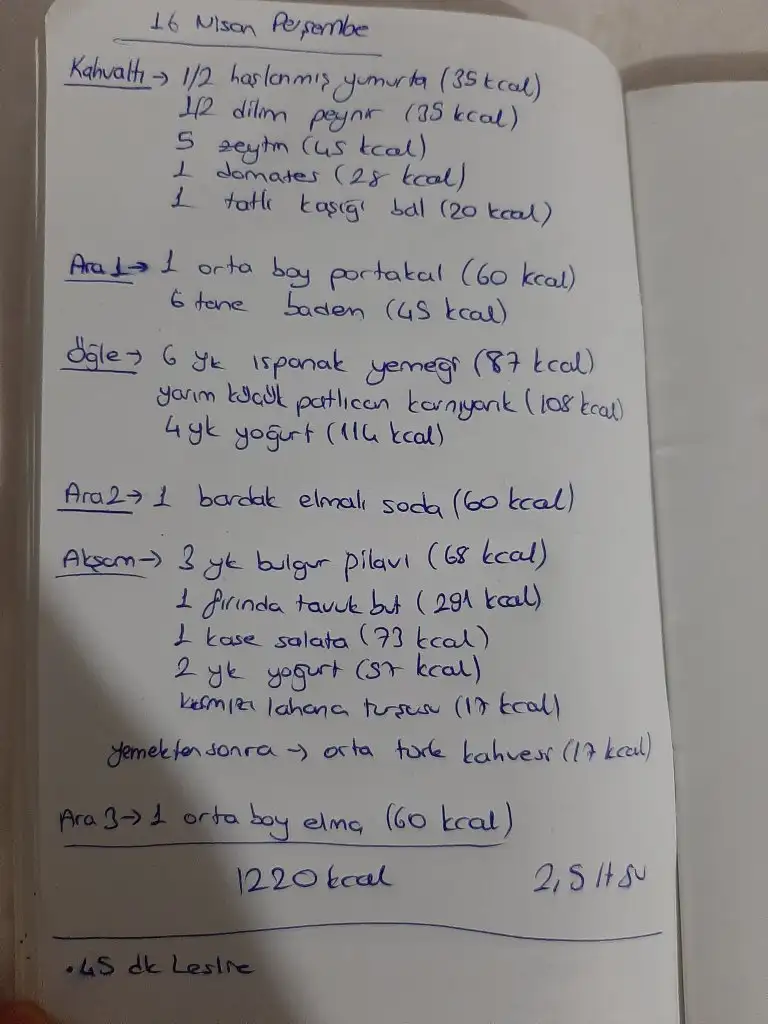 16 Nisan Perşembe
Kahvaltı → 1/2 haşlanmış yumurta (35 kcal)
1/2 dilim peynir (35 kcal)
5 zeytin (45 kcal)
1 domates (28 kcal)
1 tatlı kaşığı bal (20 kcal)
Ara 1 → 1 orta boy portakal (60 kcal)
6 tane badem (45 kcal)
Öğle → 6 yk ıspanak yemeği (87 kcal)
yarım küçük patlıcan karnıyarık (108 kcal)
4 yk yoğurt (114 kcal)
Ara 2 → 1 bardak elmalı soda (60 kcal)
Akşam → 3 yk bulgur pilavı (68 kcal)
1 fırında tavuk but (291 kcal)
1 kase salata (73 kcal)
2 yk yoğurt (57 kcal)
kırmızı lahana turşusu (17 kcal)
yemekten sonra → orta türk kahvesi (17 kcal)
Ara 3 → 1 orta boy elma (60 kcal)
1220 kcal 2,5 lt su
• 45 dk Leslie